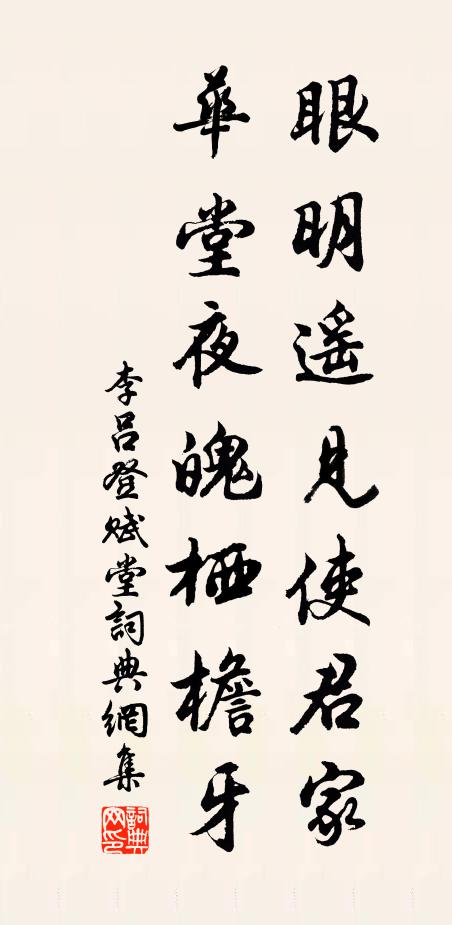 眼明遥見使君家
華堂夜魄栖檐牙
李呂登賦堂詞典網集
詞典網印